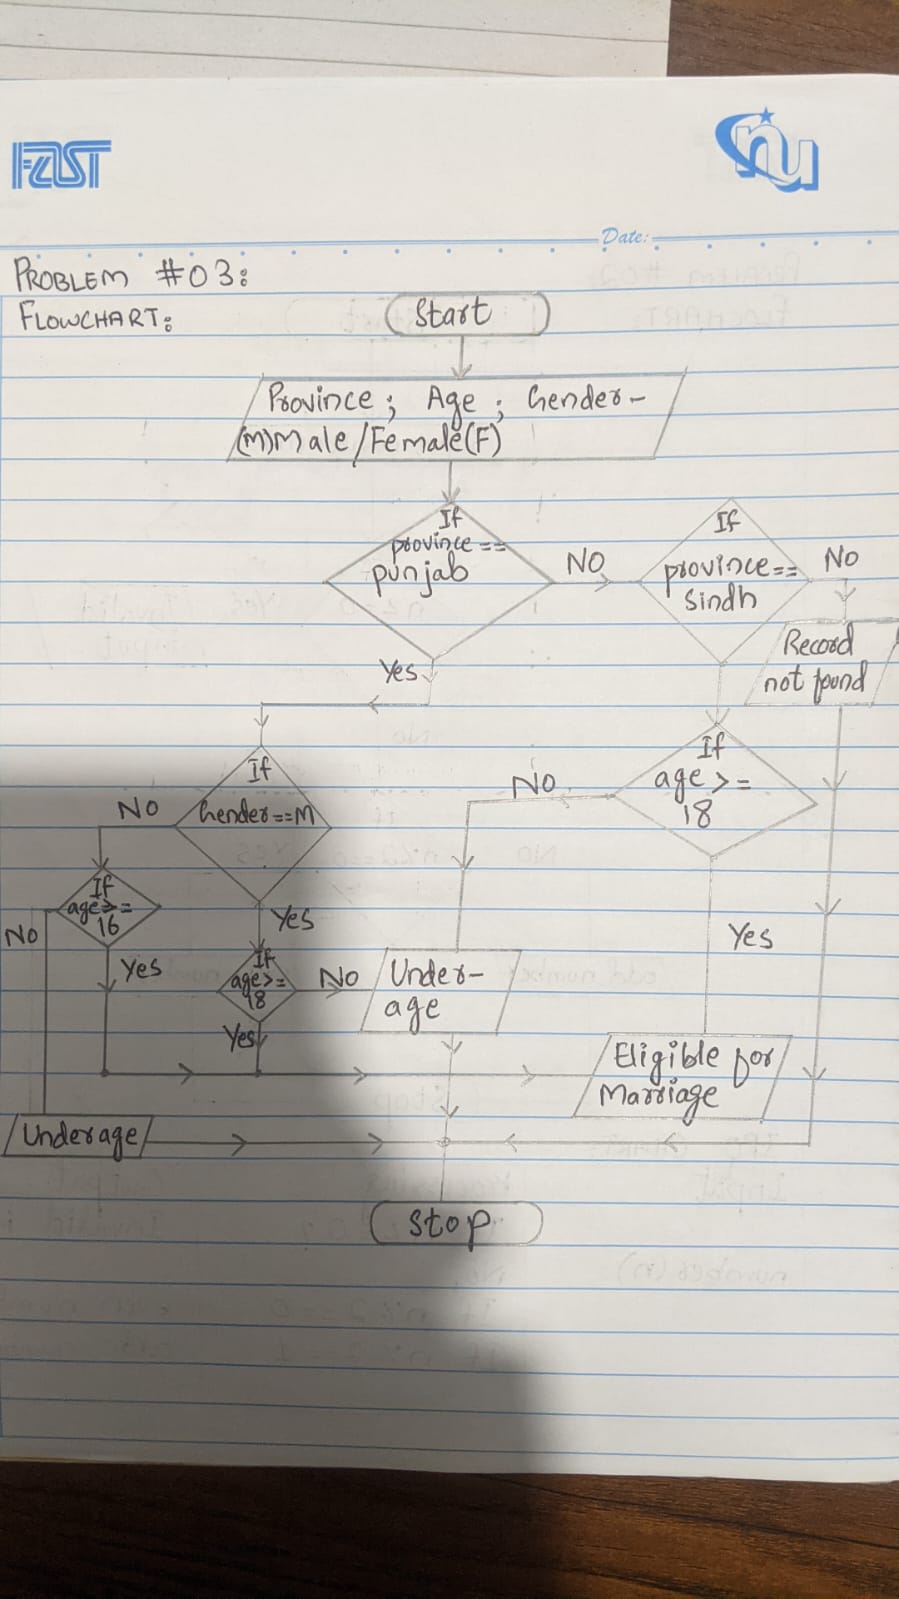 FAST
nu
Date:
PROBLEM #03:
FLOWCHART:
Start
Province; Age; Gender-
(M)Male/Female(F)
If
province==
punjab
NO
If
province==
Sindh
NO
Record
not found
Yes
If
Gender==M
NO
If
age>=
18
NO
If
age>=
16
NO
Yes
Yes
If
age>=
18
NO
Yes
Under-
age
Yes
Eligible for
Marriage
Underage
Stop